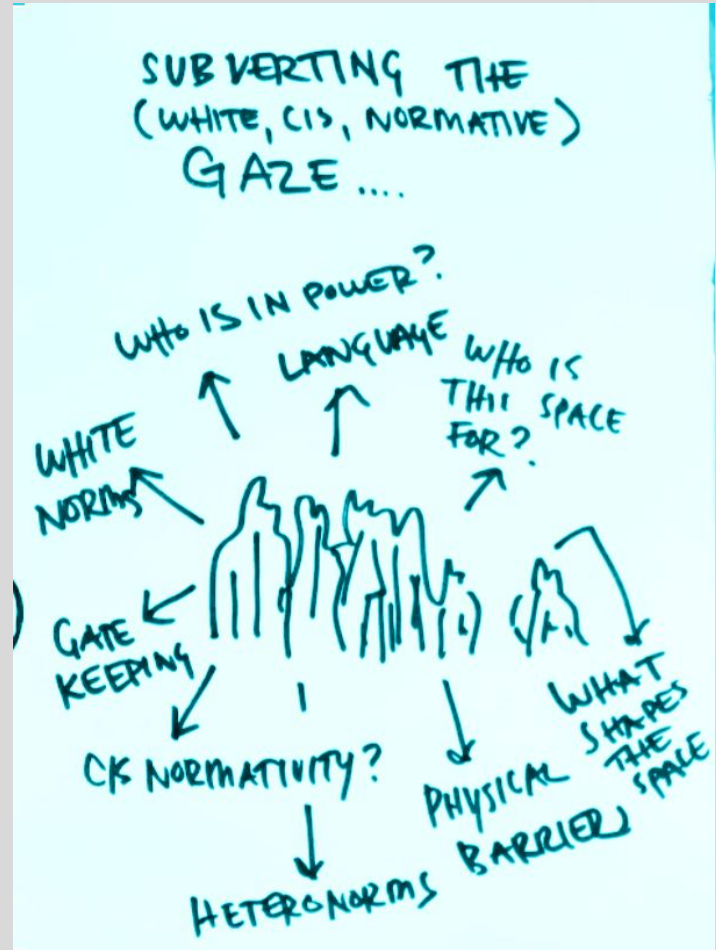 SUBVERTING THE
(WHITE, CIS, NORMATIVE)
GAZE ....
WHO IS IN POWER?
LANGUAGE
WHO IS
THIS SPACE
FOR?
WHITE
NORMS
GATE
KEEPING
CIS NORMATIVITY?
HETERONORMS
PHYSICAL
BARRIERS
WHAT
SHAPES
THE
SPACE